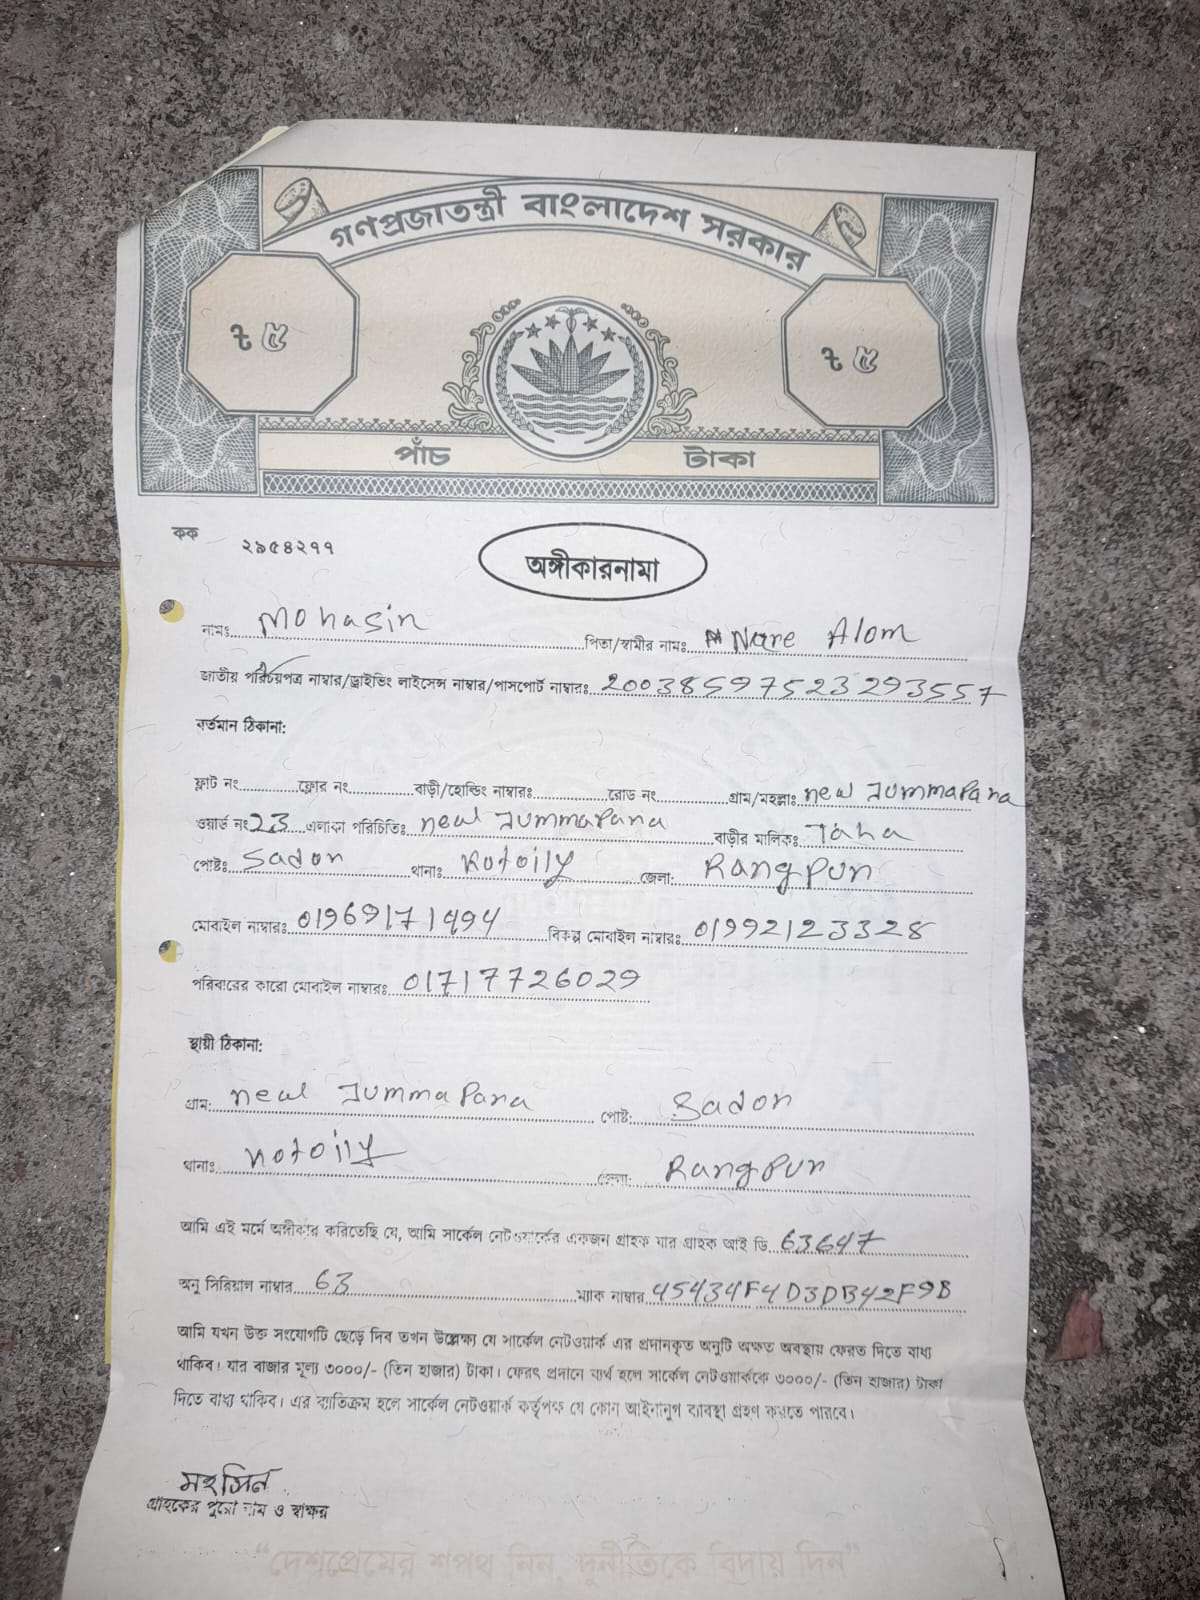 গণপ্রজাতন্ত্রী বাংলাদেশ সরকার
৳ ৫
৳ ৫
পাঁচ টাকা
কক ২৯৫৪২৭৭
অঙ্গীকারনামা
নামঃ Mohasin পিতা/স্বামীর নামঃ Nure Alom
জাতীয় পরিচয়পত্র নাম্বার/ড্রাইভিং লাইসেন্স নাম্বার/পাসপোর্ট নাম্বারঃ 20038597523293557
বর্তমান ঠিকানা:
ফ্লাট নং ফ্লোর নং বাড়ী/হোল্ডিং নাম্বারঃ রোড নং গ্রাম/মহল্লাঃ new JummaPara
ওয়ার্ড নং 23 এলাকা পরিচিতিঃ new JummaPara বাড়ীর মালিকঃ Taha
পোষ্টঃ Sador থানাঃ Kotoily জেলা: RangPur
মোবাইল নাম্বারঃ 01969171494 বিকল্প মোবাইল নাম্বারঃ 01992123328
পরিবারের কারো মোবাইল নাম্বারঃ 01717726029
স্থায়ী ঠিকানা:
গ্রাম: new JummaPara পোষ্ট: Sador
থানাঃ Kotoily জেলা: RangPur
আমি এই মর্মে অঙ্গীকার করিতেছি যে, আমি সার্কেল নেটওয়ার্কের একজন গ্রাহক যার গ্রাহক আই ডি 63647
অনু সিরিয়াল নাম্বার 63 ম্যাক নাম্বার 45434F4D3DB42F9B
আমি যখন উক্ত সংযোগটি ছেড়ে দিব তখন উল্লেক্ষ্য যে সার্কেল নেটওয়ার্ক এর প্রদানকৃত অনুটি অক্ষত অবস্থায় ফেরত দিতে বাধ্য
থাকিব। যার বাজার মূল্য ৩০০০/- (তিন হাজার) টাকা। ফেরৎ প্রদানে ব্যর্থ হলে সার্কেল নেটওয়ার্ককে ৩০০০/- (তিন হাজার) টাকা
দিতে বাধ্য থাকিব। এর ব্যতিক্রম হলে সার্কেল নেটওয়ার্ক কর্তৃপক্ষ যে কোন আইনানুগ ব্যাবস্থা গ্রহণ করতে পারবে।
মহসিন
গ্রাহকের পুরো নাম ও স্বাক্ষর
"দেশপ্রেমের শপথ নিন, দুর্নীতিকে বিদায় দিন"